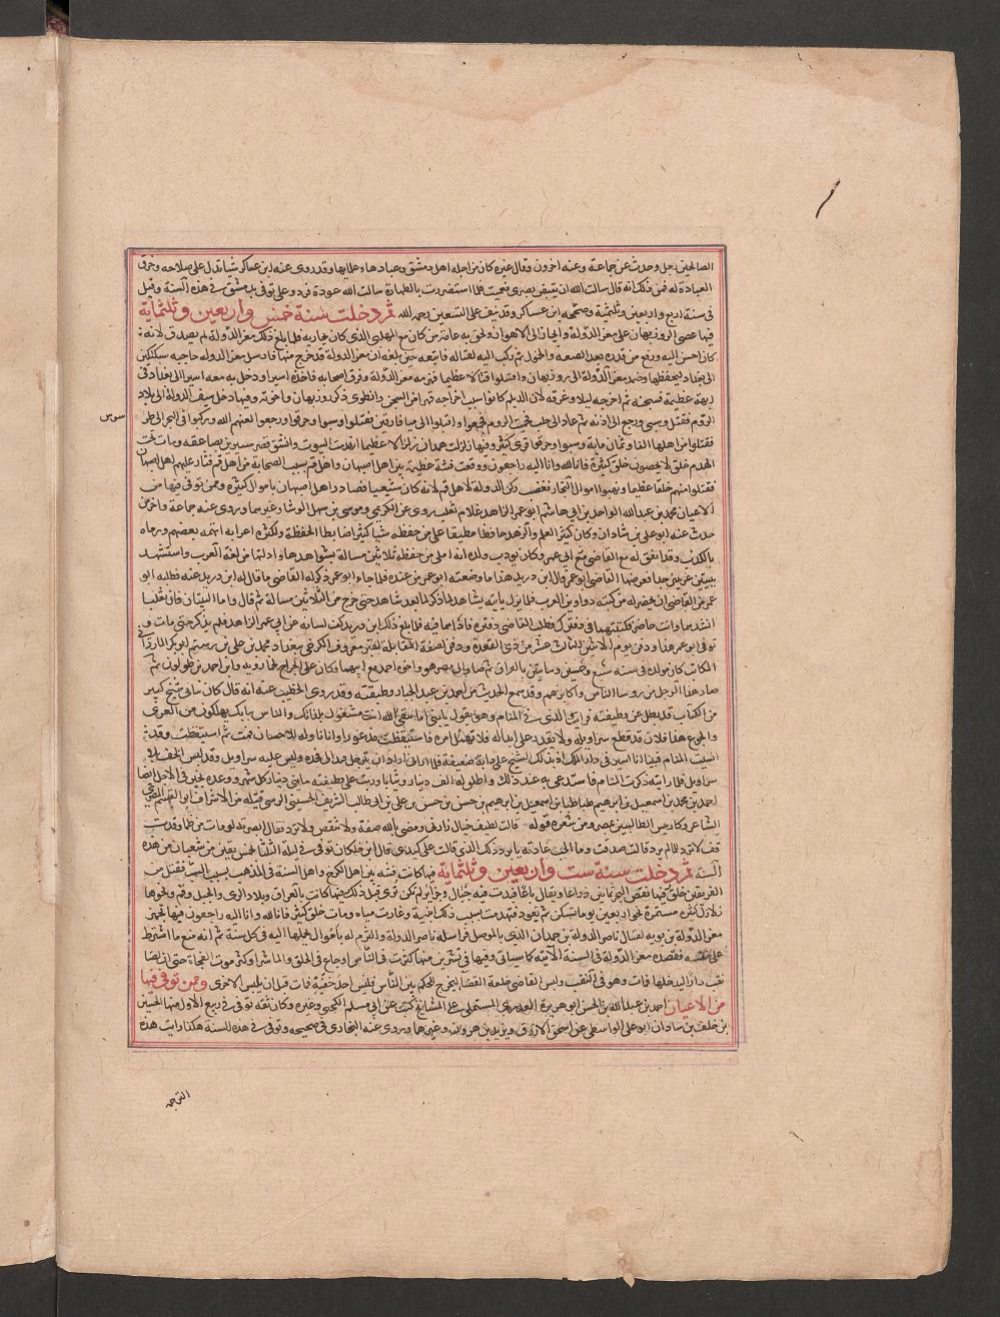 الصالحين رحل وحدث عن جماعة وعنه اخرون وقال غيره كان من اجله اهل دمشق وعبادها وعلمايها وقد روى عنه ابن عساكر شيا تدل على صلاحه وخرق
العبادة له فمن ذلك انه قال سالت الله ان يقبض بصري فعميت فلما استضررت بالطهارة سالت الله عودة فرده على توفى بدمشق في هذه السنة وقيل
في سنة اربع واربعين وثلثمية وصححه ابن عساكر وقد نيف على التسعين رحمه الله ثم دخلت سنة خمس وأربعين وثلثماية
فيها عصى الروزبهان على معز الدولة وانحاز الى الاهواز ولحق به عامة من كان مع المهلبي الذي كان يحاربه فلما بلغ ذلك معز الدولة لم يصدق لانه
كان احسن اليه ورفع من قدره بعد الضعة والخمول ثم ركب اليه لقتاله فاتبعه حتى بلغه ان معز الدولة قد خرج منها فارسل معز الدولة حاجبه سبكتكين
الى بغداد ليحفظها وصمد معز الدولة الى روزبهان واقتتلوا قتالا عظيما فهزمه معز الدولة وفرق اصحابه فاخذه اسيرا ودخل به معه اسيرا الى بغداد في
ابهة عظيمة فسجنه ثم اخرجه ليلا وغرقه لان الديلم كانوا سبب اخراجه قهرا من السجن وانطوى ذكر روزبهان واخوته وفيها دخل سيف الدولة الى بلاد
الروم فقتل وسبى ورجع الى اذنه ثم عاد الى حلب فحميت الروم فجمعوا واقبلوا الى ميافارقين فقتلوا وسبوا وحرقوا ورجعوا لعنهم الله وركبوا في البحر الى طرسوس
فقتلوا من اهلها الفا وثمان ماية وسبوا وحرقوا قرى كثيرة وفيها زلزلت همدان زلزالا عظيما انهدت البيوت وانشق قصر سيرين بصاعقه ومات تحت
الهدم خلق لا يحصون كثرة فانا لله وانا اليه راجعون ووقعت فتنة عظيمة بين اهل اصبهان واهل قم بسبب الصحابة من اهل قم فثار عليهم اهل اصبهان
فقتلوا منهم خلقا عظيما ونهبوا اموال التجار فغضب ركن الدولة لاهل قم لانه كان شيعيا فصادر اهل اصبهان باموال كثيرة وممن توفى فيها من
الاعيان محمد بن عبدالله الواحد بن ابي هاشم ابو عمر الزاهد غلام ثعلب روى عن الكريمي وموسى بن سهل الوشا وغيرهما وروى عنه جماعة واخر من
حدث عنه ابو علي بن شاذان وكان كثير العلم والزهد حافظا مطبقا على من حفظه شيا كثيرا ضابطا لحفظه ولكثرة اعرابه اتهمه بعضهم ورماه
بالكذب وقد اتفق له مع القاضي ابي عمر وكان يودب ولده انه املى من حفظه ثلاثين مسالة بشواهدها وادلتها من لغة العرب واستشهد
ببيتين غريبين جدا فعرضها القاضي ابو عمر
عمر من القاضي ان يحضر له من كتبه دواوين العرب فلم يزل ياتيه بشاهد لما ذكر بعد شاهد حتى خرج من الثلاثين مسالة ثم قال واما البيتان فان ثعلبا
انشدهما وانت حاضر فكتبتهما في دفترك فطلب القاضي دفتره فاذا هما فيه فلما بلغ ذلك ابن دريد كف لسانه عن ابي عمر الزاهد فلم يذكره حتى مات
توفى ابو عمر هذا ودفن يوم الاثنين الثالث عشر من ذي القعدة ودفن بالصفة المقابلة لقبر معروف الكرخي ببغداد محمد بن علي بن رستم ابو بكر الماردانى
الكاتب كان مولده في سنه سبع وخمسين ومايتين بالعراق ثم صار الى مصر هو واخوه احمد مع ابيهما وكان على الخراج لخمارويه ابن احمد بن طولون ثم
صار هذا الرجل من روسا الناس واكابرهم وقد سمع الحديث من احمد بن عبد الجبار وطبقته وقد روى الخطيب عنه انه قال كان ببابي شيخ كبير
من الكتاب قد بطل عن وظيفته فرايت والدي في المنام وهو يقول يا بني اما تتقي الله انت مشغول بلذاتك والناس ببابك يهلكون من العرى
والجوع هذا فلان قد تقطع سراويله ولا يقدر على ابداله فلا تهمل امره فاستيقظت مذعورا وانا ناو له الاحسان فنمت ثم استيقظت وقد
انسيت المنام فبينا انا اسير الى دار الملك اذ بذلك الشيخ على دابة ضعيفة فلما راني اراد ان يترجل فبدا لي فخذه وليس عليه سراويل وقد لبس الخف بلا
سراويل فلما رايته ذكرت المنام فاستدعى به عند ذلك واطلق له الف دينار وثيابا ورتب على وظيفته مايتي دينار كل شهر ووعده بخير في الاجل ايضا
احمد بن محمد بن اسمعيل بن ابرهيم طباطبا بن اسمعيل بن ابرهيم بن حسن بن حسن بن علي بن ابي طالب الشريف الحسيني الرسي قبيلة من الاشراف ابو القسم المصري
الشاعر وكان رييس الطالبيين بمصر ومن شعره قوله قالت لطيف خيال زارني ومضى بالله صفه ولا تنقص ولا تزد فقال ابصرته لو مات من ظما وقلت
قف لا ترد للماء لم يرد قالت صدقت وفا الحب عادته يا برد ذاك الذي قالت على كبدي قال ابن خلكان توفى في ليلة الثلاثا لخمس بقين من شعبان من هذه
السنة ثم دخلت سنة ست وأربعين وثلثماية فيها كانت فتنه بين اهل الكرخ واهل السنة في المذهب بسبب السب فقتل من
الفريقين خلق كثير فيها نقص البحر ثمانين ذراعا ويقال باعا فبدت فيه جبال وجزائر لم تكن ترى قبل ذلك وفيها كانت بالعراق وبلاد الرى والجبل وقم ونحوها
زلازل كثيرة مستمرة نحو اربعين يوما تسكن ثم تعود فتهدمت بسبب ذلك ابنية وغارت مياه ومات خلق كثير فانا لله وانا اليه راجعون فيها تجهز
معز الدولة بن بويه لقتال ناصر الدولة بن حمدان الذى بالموصل فراسله ناصر الدولة والتزم له باموال يحملها اليه في كل سنة ثم انه منع ما اشترط
على نفسه فقصده معز الدولة في السنة الآتية كما سياتى وفيها في تشرين منها كثرت في الناس اوجاع في الحلق والماشرا وكثر موت الفجاة حتى ان لصا
نقب دارا ليدخلها فمات وهو في النقب ولبس القاضي خلعة القضا ليخرج للحكم بين الناس فلبس احد خفيه فمات قبل ان يلبس الاخرى وممن توفي فيها
من الأعيان احمد بن عبدالله بن الحسن ابو هريرة العدوي المستملى على المشايخ كتب عن ابى مسلم الكجي وغيره وكان ثقه توفى في ربيع الاول منها الحسن
بن خلف بن شاذان ابو علي الواسطي عن اسحق الازرق ويزيد بن هرون وغيرهما وروى عنه البخاري في صحيحه وتوفى في هذه السنة هكذا رايت هذه
الترجمه